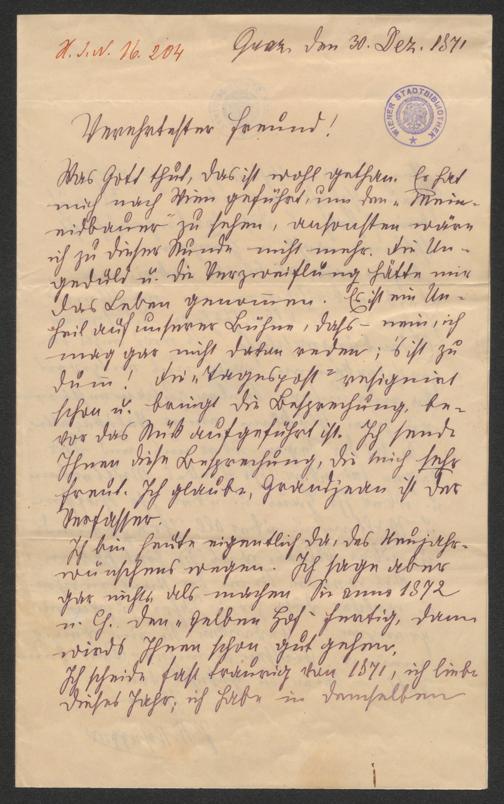 H. I. N. 16.204
Graz, den 30. Dez. 1871
WIENER STADTBIBLIOTHEK
Verehrtester Freund!
Was Gott thut, das ist wohl gethan. Er hat
mich nach Wien geführt, um den „Mein-
eidbauer" zu sehen, ansonsten wäre
ich zu dieser Stunde nicht mehr. Die Un-
geduld u. die Verzweiflung hätte mir
das Leben genommen. Es ist ein Un-
heil auf unserer Bühne, daß – nein, ich
mag gar nicht davon reden; 's ist zu
dum̅! Die „Tagespost" resignirt
schon u. bringt die Besprechung, be-
vor das Stück aufgeführt ist. Ich sende
Ihnen diese Besprechung, die mich sehr
freut. Ich glaube, Grandjean ist der
Verfasser.
Ich bin heute eigentlich da, des Neujahr-
wünschens wegen. Ich sage aber
gar nichts als machen Sie anno 1872
n. Ch. den „gelben Hof" fertig, dann
wirds Ihnen schon gut gehen.
Ich scheide fast traurig von 1871, ich liebe
dieses Jahr, ich habe in demselben